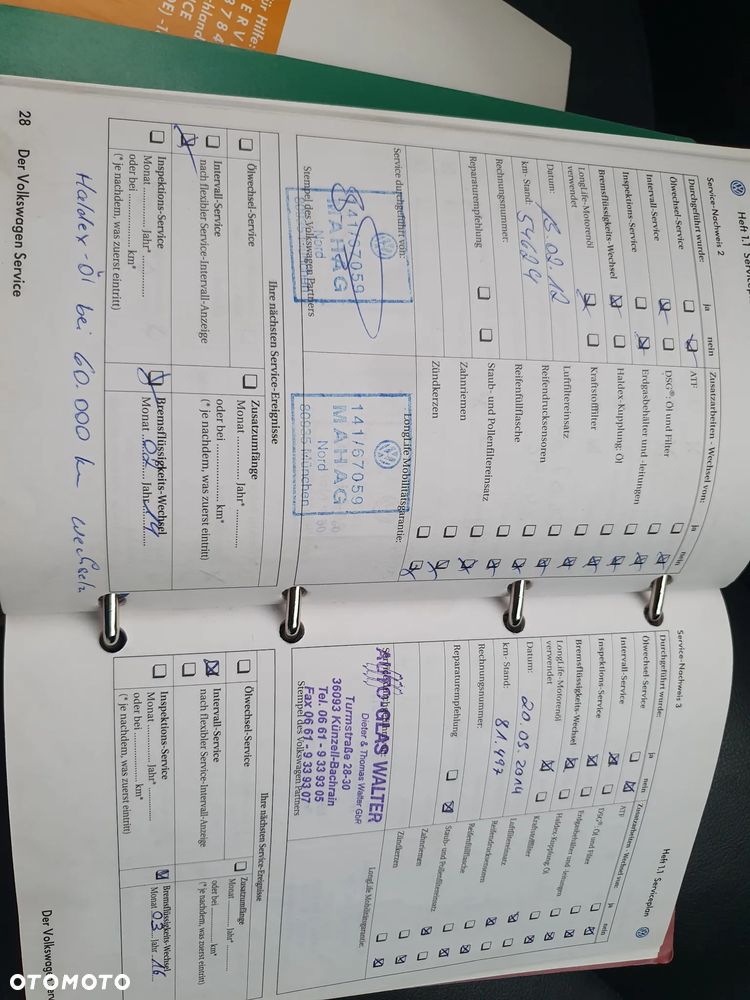 ür Hilfe:
Heft 1.1 Servicep
Service-Nachweis 2
Durchgeführt wurde:
ja
nein
Ölwechsel-Service
Intervall-Service
Inspektions-Service
Bremsflüssigkeits-Wechsel
LongLife-Motorenöl
verwendet
Datum: 15.02.12
km- Stand: 54624
Rechnungsnummer:
Reparaturempfehlung
Service durchgeführt von:
141/67059
MAHAG
Nord
Stempel des Volkswagen Partners
Zusatzarbeiten - Wechsel von:
ja
nein
ATF
DSG®: Öl und Filter
Erdgasbehälter und -leitungen
Haldex-Kupplung: Öl
Kraftstofffilter
Luftfiltereinsatz
Reifendrucksensoren
Reifenfüllflasche
Staub- und Pollenfiltereinsatz
Zahnriemen
Zündkerzen
LongLife Mobilitätsgarantie:
141/67059
MAHAG
Nord
80935 München
Ihre nächsten Service-Ereignisse
Ölwechsel-Service
Intervall-Service
nach flexibler Service-Intervall-Anzeige
Inspektions-Service
Monat ............ Jahr* ............
oder bei ............ km*
(* je nachdem, was zuerst eintritt)
Zusatzumfänge
Monat ............ Jahr* ............
oder bei ............ km*
(* je nachdem, was zuerst eintritt)
Bremsflüssigkeits-Wechsel
Monat 02 Jahr 14
Haldex-Öl bei 60.000 km wechseln
28 Der Volkswagen Service
Heft 1.1 Serviceplan
Service-Nachweis 3
Durchgeführt wurde:
ja
nein
Ölwechsel-Service
Intervall-Service
Inspektions-Service
Bremsflüssigkeits-Wechsel
LongLife-Motorenöl
verwendet
Datum: 20.03.2014
km- Stand: 81.497
Rechnungsnummer:
Reparaturempfehlung
AUTO GLAS WALTER
Dieter & Thomas Walter GbR
Turmstraße 28-30
36093 Künzell-Bachrain
Tel. 06 61 - 9 33 93 05
Fax 06 61 - 9 33 93 07
Stempel des Volkswagen Partners
Zusatzarbeiten - Wechsel von:
ja
nein
ATF
DSG®: Öl und Filter
Erdgasbehälter und -leitungen
Haldex-Kupplung: Öl
Kraftstofffilter
Luftfiltereinsatz
Reifendrucksensoren
Reifenfüllflasche
Staub- und Pollenfiltereinsatz
Zahnriemen
Zündkerzen
LongLife Mobilitätsgarantie:
Ihre nächsten Service-Ereignisse
Ölwechsel-Service
Intervall-Service
nach flexibler Service-Intervall-Anzeige
Inspektions-Service
Monat ............ Jahr* ............
oder bei ............ km*
(* je nachdem, was zuerst eintritt)
Zusatzumfänge
Monat ............ Jahr* ............
oder bei ............ km*
(* je nachdem, was zuerst eintritt)
Bremsflüssigkeits-Wechsel
Monat 03 Jahr 16
Der Volkswagen Serv
OTOMOTO